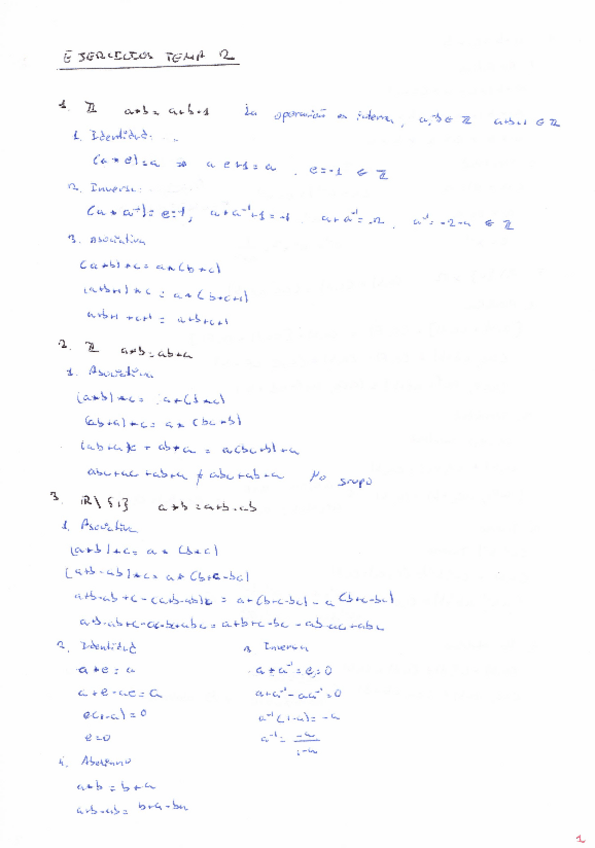 EJERCICIOS TEMA 2
1. ℤ a*b = a+b+1 La operación es interna, a,b ∈ ℤ a+b+1 ∈ ℤ
1. Identidad:
(a * e) = a ⇒ a e+1 = a . e = -1 ∈ ℤ
2. Inverso:
(a * a⁻¹) = e = -1, a + a⁻¹ + 1 = -1 a + a⁻¹ = -2, a⁻¹ = -2 - a ∈ ℤ
3. Asociativa
(a*b)*c = a*(b*c)
(a+b+1)*c = a*(b+c+1)
a+b+1+c+1 = a+b+c+1
2. ℤ a*b = ab+a
1. Asociativa
(a*b)*c = a*(b*c)
(ab+a)*c = a*(bc+b)
(ab+a)c + ab+a = a(bc+b)+a
abc+ac+ab+a ≠ abc+ab+a No grupo
3. ℝ\{1} a*b = a+b-ab
1. Asociativa
(a*b)*c = a*(b*c)
(a+b-ab)*c = a*(b+c-bc)
a+b-ab+c-(a+b-ab)c = a+(b+c-bc)-a(b+c-bc)
a+b-ab+c-ac-bc+abc = a+b+c-bc-ab-ac+abc
2. Identidad 3. Inverso
a*e = a a*a⁻¹ = e = 0
a+e-ae = a a+a⁻¹-aa⁻¹ = 0
e(1-a) = 0 a⁻¹(1-a) = -a
e = 0 a⁻¹ = -a/1-a
4. Abeliano
a*b = b*a
a+b-ab = b+a-ba
1